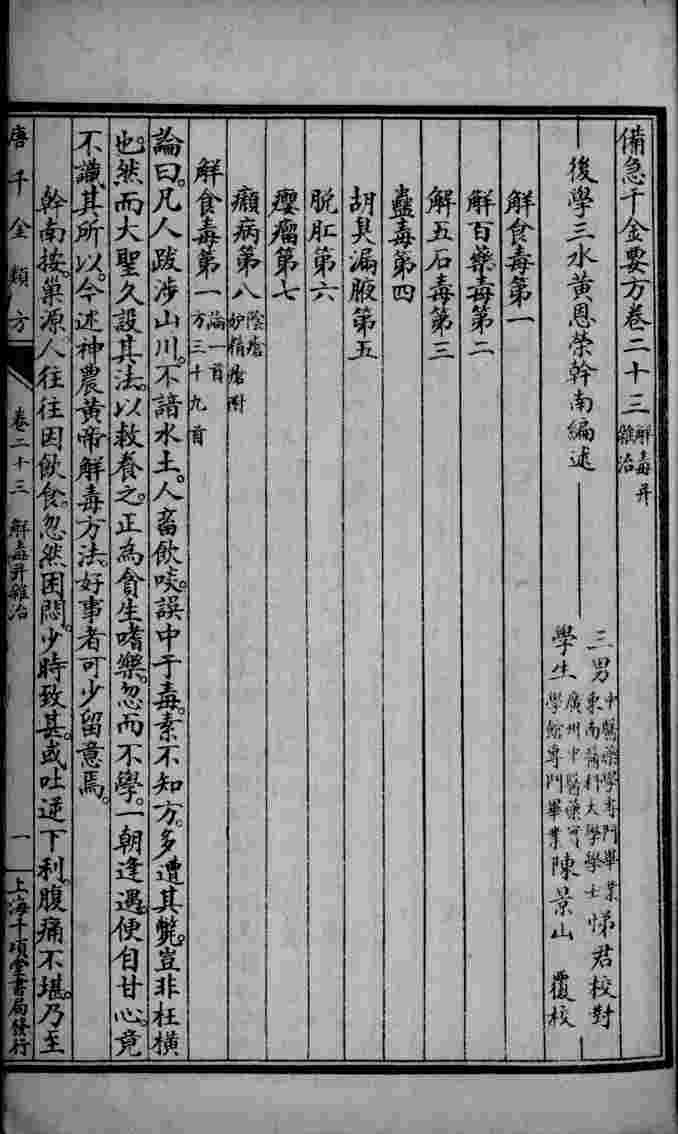 備急千金要方卷二十三 解毒并雜治
後學三水黃恩榮幹南編述
三男 中醫藥學專門畢業 東南醫科大學學士 悌君校對
學生 廣州中醫藥專 學館專門畢業 陳景山 覆校
解食毒第一
解百藥毒第二
解五石毒第三
蠱毒第四
胡臭漏腋第五
脫肛第六
癭瘤第七
癩病第八 陰瘡 妒精瘡附
解食毒第一 論一首 方三十九首
論曰。凡人跋涉山川。不諳水土。人畜飲啖。誤中于毒。素不知方。多遭其斃。豈非枉橫
也。然而大聖久設其法。以救養之。正為貪生嗜樂。忽而不學。一朝逢遇。便自甘心。竟
不識其所以。今述神農黃帝解毒方法。好事者可少留意焉。
幹南按。巢源。人往往因飲食。忽然困悶。少時致甚。或吐逆下利。腹痛不堪。乃至
唐千金類方 卷二十三 解毒并雜治 一 上海千頃堂書局發行